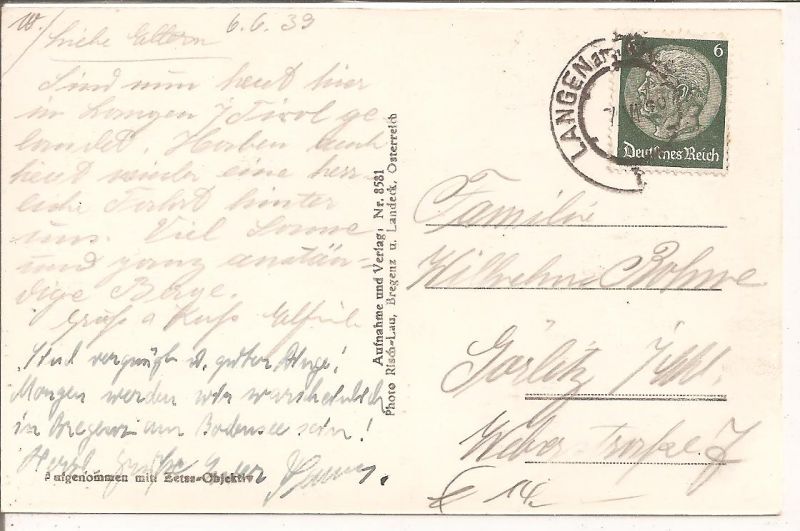 6.6.39
Liebe Eltern
Sind nun heut hier
in Langen / Tirol ge
landet. Haben auch
heut wieder eine herr-
liche Fahrt hinter
uns. Viel Sonne
und ganz anstän-
dige Berge.
Gruß u Kuß
Sind vergnügt u. guter Dinge!
Morgen werden wir wahrscheinlich
in Bregenz am Bodensee sein!
Herzl. Grüße Euer
Aufgenommen mit Zeiss-Objektiv
Aufnahme und Verlag: Nr. 8581
Photo Risch-Lau, Bregenz u. Landeck, Österreich
LANGEN am
6
Deutsches Reich
Familie
Wilhelm Böhme
Görlitz /Schl.
Weber-Straße 7
14.-